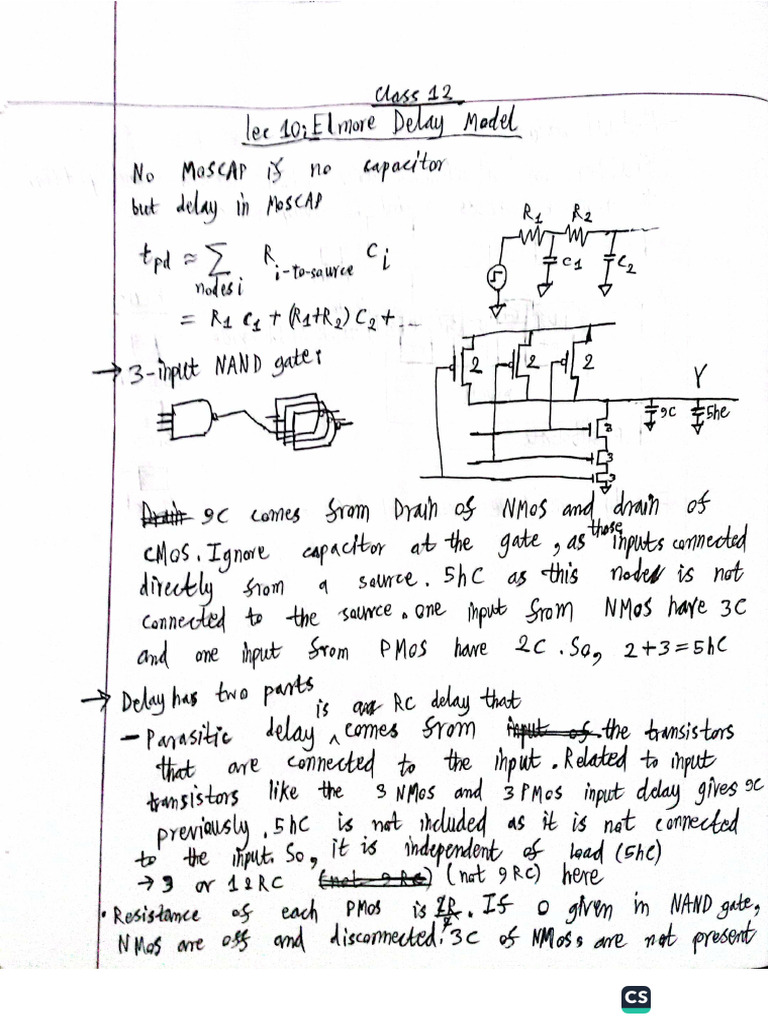 Class 12
lec 10: Elmore Delay Model
No MOSCAP is no capacitor
but delay in MOSCAP
R1 R2
C1 C2
tpd ≈ ∑nodes i R i-to-source Ci
= R1 C1 + (R1+R2) C2 + ...
→ 3-input NAND gate:
2 2 2
Y
9C 5hC
3
3
3
9C comes from Drain of NMOS and drain of
CMOS. Ignore capacitor at the gate, as those inputs connected
directly from a source. 5hC as this node is not
connected to the source. One input from NMOS have 3C
and one input from PMOS have 2C. So, 2+3=5hC
→ Delay has two parts
- Parasitic delay is RC delay that comes from the transistors
that are connected to the input. Related to input
transistors like the 3 NMOS and 3 PMOS input delay gives 9C
previously. 5hC is not included as it is not connected
to the input. So, it is independent of load (5hC)
→ 9 or 12RC (not 9RC) here
• Resistance of each PMOS is 2R/2. If 0 given in NAND gate,
NMOS are off and disconnected. 3C of NMOSs are not present
CS